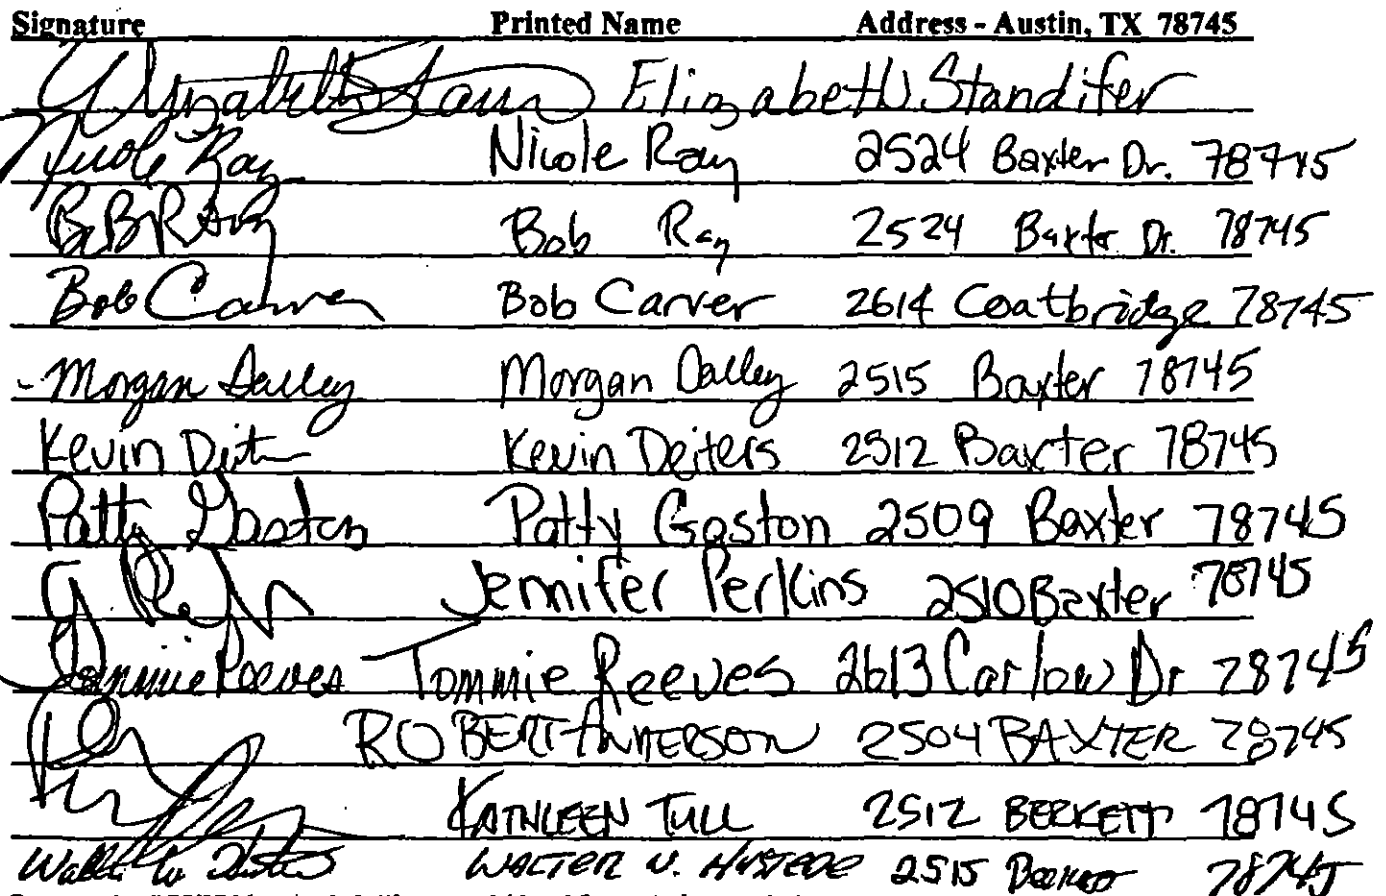 Signature Printed Name Address - Austin, TX 78745
Elizabeth Elizabeth Standifer
Nicole Ray Nicole Ray 2524 Baxter Dr. 78745
Bob Ray 2524 Baxter Dr. 78745
Bob Carver Bob Carver 2614 Coatbridge 78745
Morgan Dailey Morgan Dailey 2515 Baxter 78745
Kevin Kevin Deiters 2512 Baxter 78745
Patty Gaston Patty Gaston 2509 Baxter 78745
Jennifer Perkins 2510 Baxter 78745
Tommie Reeves Tommie Reeves 2613 Carlow Dr 78745
ROBERT ANDERSON 2504 BAXTER 78745
KATHLEEN TULL 2512 BERKETT 78745
Walter W. WALTER W. HUSTEDE 2515 78745